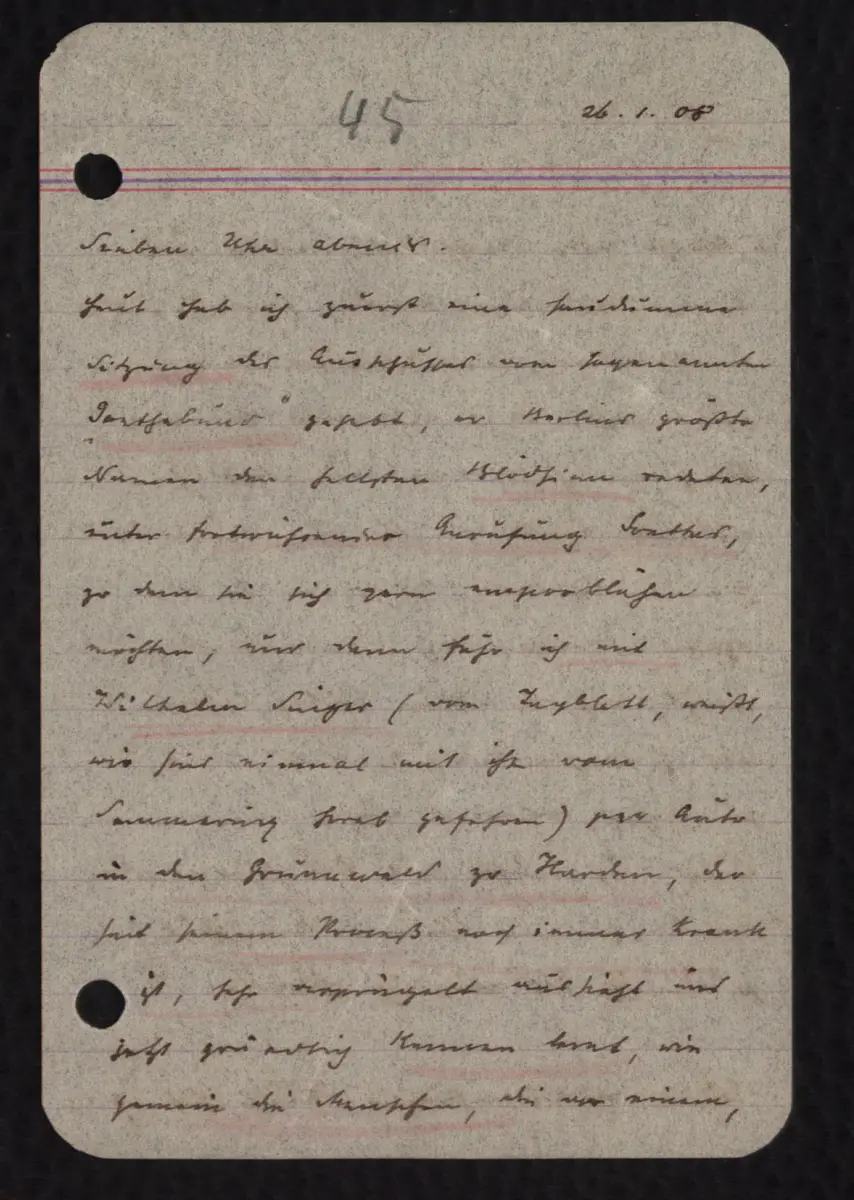 45
26.1.08
Sieben Uhr abends.
Heut hab ich zuerst eine saudumme
Sitzung des Ausschusses vom sogenannten
„Goethebund" gehabt, wo Berlins größte
Namen den hellsten Blödsinn redeten,
unter fortwährender Anrufung Goethes,
zu dem sie sich gern emporblähen
möchten, und dann fuhr ich mit
Wilhelm Singer (vom Tagblatt, weißt,
wir sind einmal mit ihm vom
Semmering herab gefahren) per Auto
in den Grunewald zu Harden, der
seit seinem Proceß noch immer krank
ist, sehr verprügelt aussieht und
jetzt gründlich kennen lernt, wie
gemein die Menschen, die vor einem,